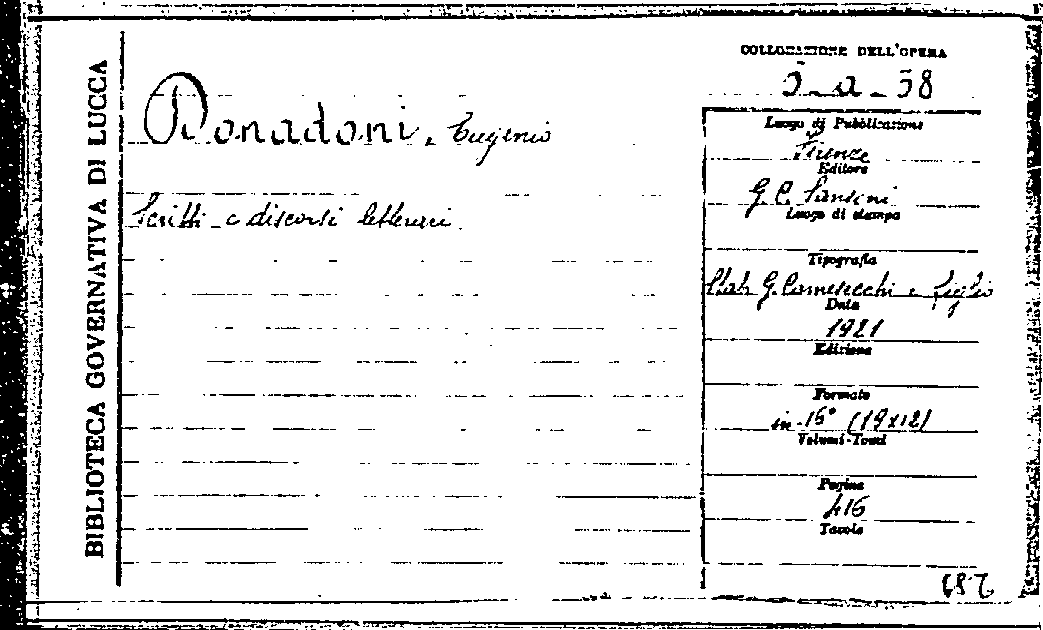 BIBLIOTECA GOVERNATIVA DI LUCCA
Donadoni, Eugenio
Scritti e discorsi letterari.
COLLOCAZIONE DELL'OPERA
Luogo di Pubblicazione
Firenze
Editore
G. C. Sansoni
Luogo di stampa
Tipografia
Stab. G. Carnesecchi e figlio
Data
1921
Edizione
Formato
in-16° (19x12)
Volumi-Tomi
Pagine
416
Tavole